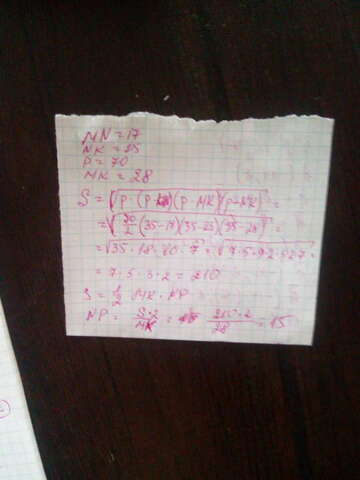 MN = 17
NK = 25
P = 70
MK = 28
S = √P · (P - MN)(P - MK)(P - NK) =
= √70/2 (35 - 17)(35 - 25)(35 - 28) =
= √35 · 18 · 10 · 7 = √7 · 5 · 9 · 2 · 5 · 2 · 7 =
= 7 · 5 · 3 · 2 = 210
S = 1/2 MK · NP
NP = S · 2 / MK = 210 · 2 / 28 = 15